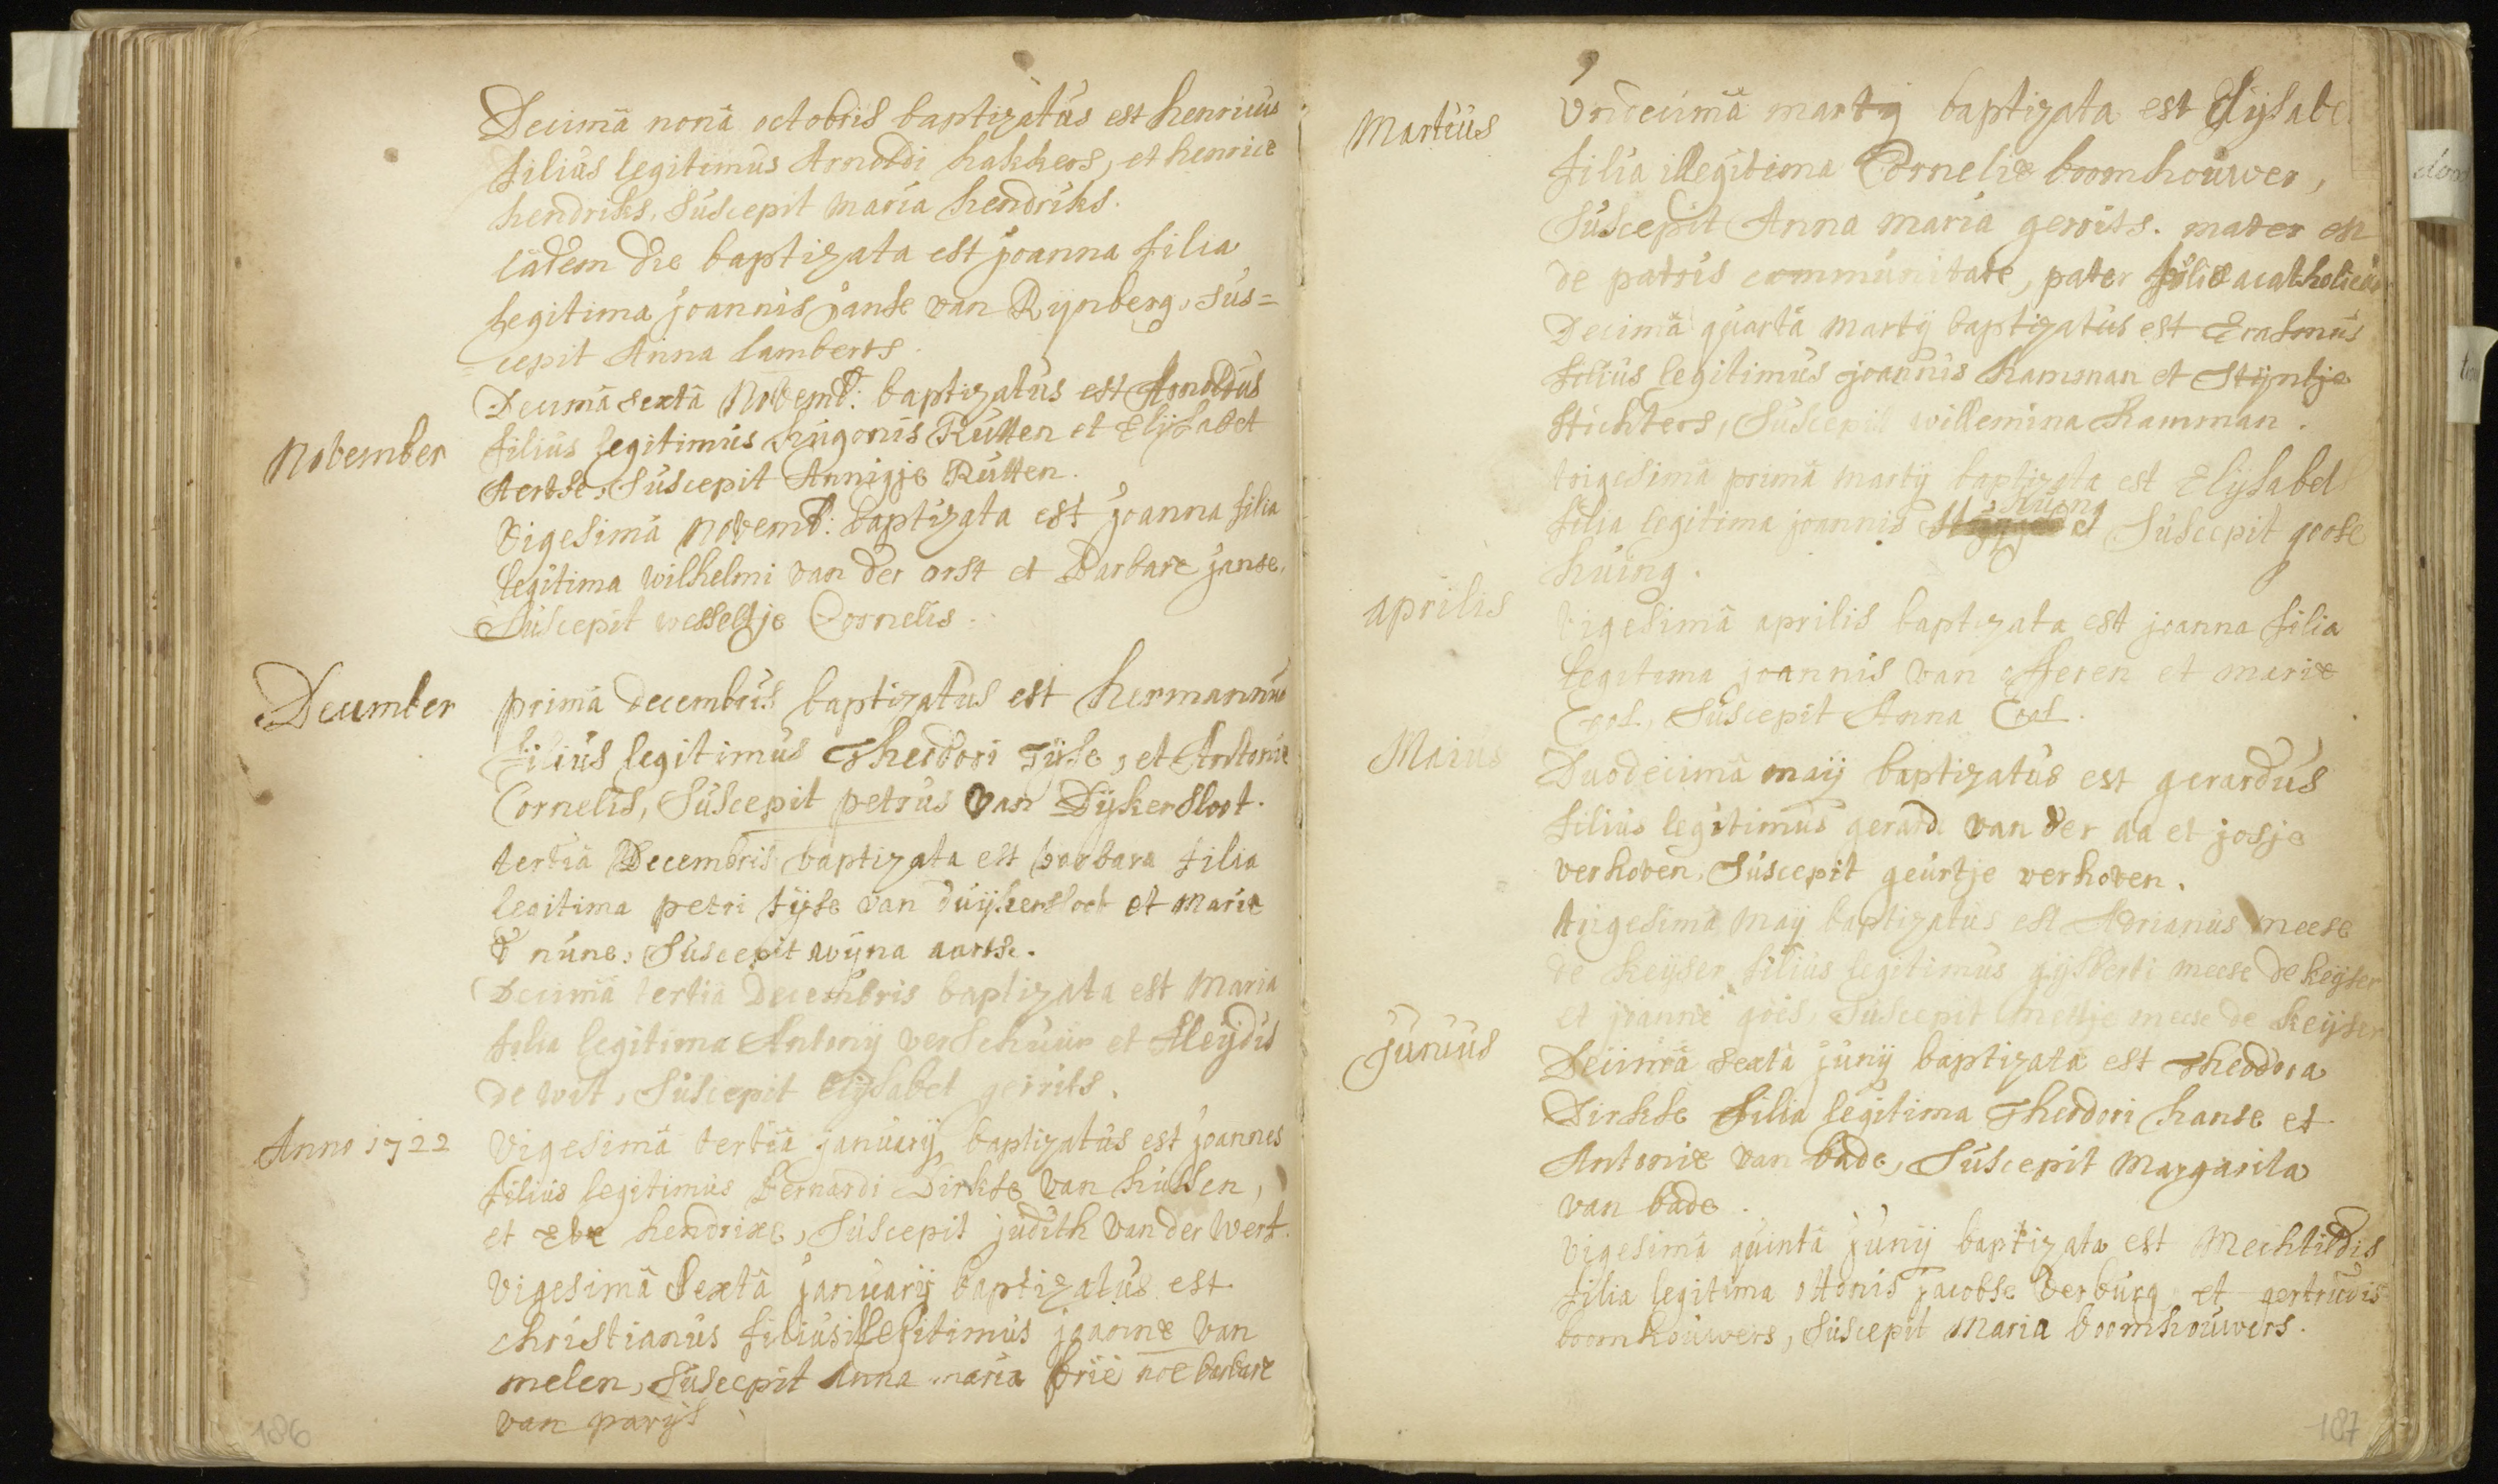 Decimâ nonâ octobris baptizatus est henricus
filius legitimus Arnoldi hakkers, et henricæ
hendriks, Suscepit Maria hendriks.
Eâdem die baptizata est joanna filia
legitima joannis janse van Rijnberg, sus=
=cepit Anna lamberts.
Decimâ sextâ Novemb: baptizatus est Arnoldus
November
filius legitimus hugonis Rutten et Elijsabet
Aertse, Suscepit Annigje Rutten.
Vigesimâ Novemb: baptizata est joanna filia
legitima Wilhelmi van der orst et Barbaræ janse,
Suscepit wesseltje Cornelis.
December
primâ decembris baptizatus est hermannus
filius legitimus Theodori Tijse, et Antoniæ
Cornelis, Suscepit petrus van Dijkersloot.
tertiâ Decembris baptizata est barbara filia
legitima petri tijse van duijkersloot et Mariæ
nune, Suscepit wijna aartse.
Decimâ tertiâ Decembris baptizata est Maria
filia legitima Antonij verschuur et Aleijdis
de wit, Suscepit elijsabet gerrits.
Anno 1722
Vigesimâ tertiâ januarij baptizatus est joannes
filius legitimus Bernardi Dirkse van hulsen,
et Evæ hendrixe, Suscepit judith van der Werf.
Vigesimâ Sextâ januarij baptizatus est
christianus filius illegitimus joannæ van
melen, Suscepit Anna maria brië noe barbaræ
van parijs
186
Martius
Undecimâ martij baptizata est Elijsabe
filia illegitima Corneliæ boomhouwer,
Suscepit Anna maria gerrits. mater est
de patris communitate, pater filiæ acatholicus
Decimâ quartâ Martij baptizatus est Erasmus
filius legitimus joannis hamman et Stijntje
Stichters, Suscepit willemina hamman.
trigesimâ primâ Martij baptizata est Elijsabet
huing
filia legitima joannis et Suscepit goose
huing.
Aprilis
Vigesimâ aprilis baptizata est joanna filia
legitima joannis van Aferen et mariæ
Crol, Suscepit Anna Crol.
Maius
Duodecimâ maij baptizatus est gerardus
filius legitimus gerardi van der aa et josje
verhoven, Suscepit geurtje verhoven.
trigesimâ Maij baptizatus est Adrianus meese
de keijser filius legitimus gijsberti meese de keijser
et joannæ goes, Suscepit metje meese de keijser
Junius
Decimâ sextâ junij baptizata est Theodora
Dirkse filia legitima Theodori hanse et
Antoniæ van bade, Suscepit Margarita
van bade.
Vigesimâ quintâ junij baptizata est Mechtildis
filia legitima ottonis jacobse Verburg et gertrudis
boomhouwers, Suscepit Maria boomhouwers.
187